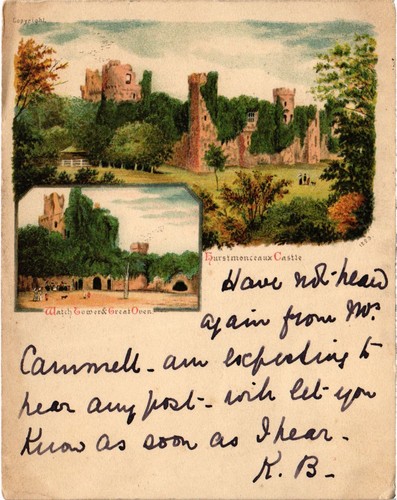 Copyright
Hurstmonceaux Castle
Watch Tower & Great Oven
Have not heard
again from Mrs
Cammell - am expecting to
hear any post - will let you
know as soon as I hear -
K. B -